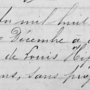 mil huit
Décembre à
de Louis Hip
ans, sans prof